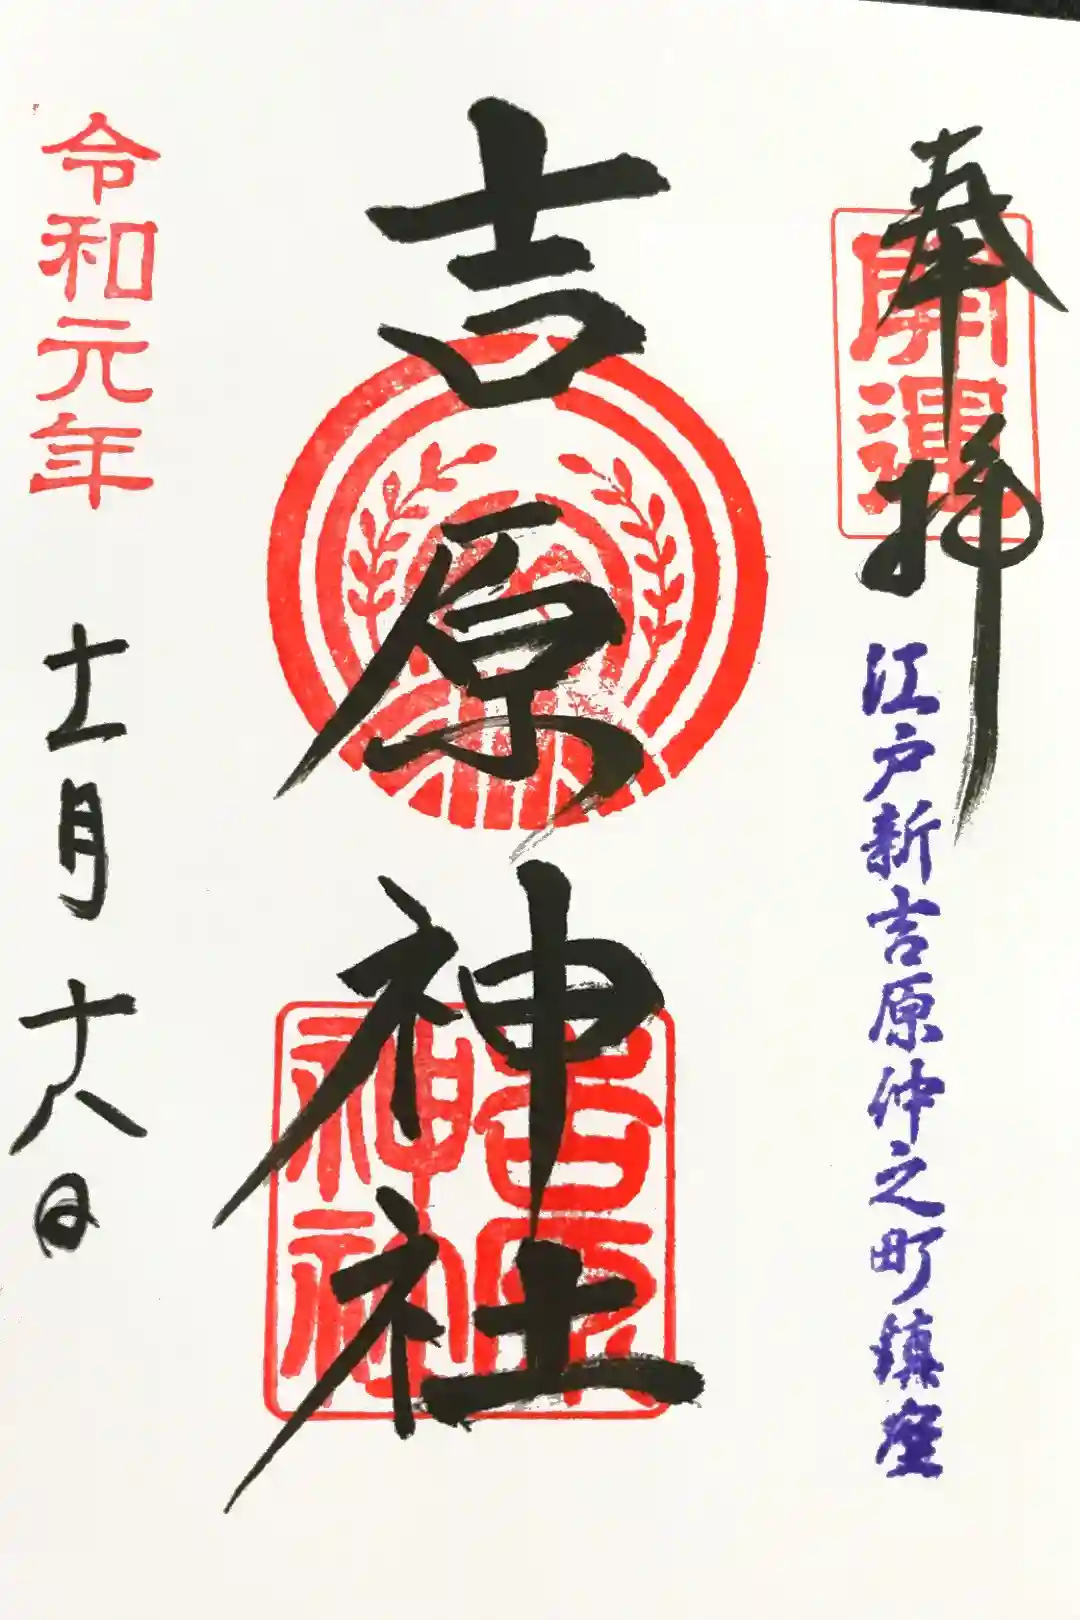 奉拝
開運
江戸新吉原仲之町鎮座
吉原神社
吉原
神社
令和元年
十一月十八日